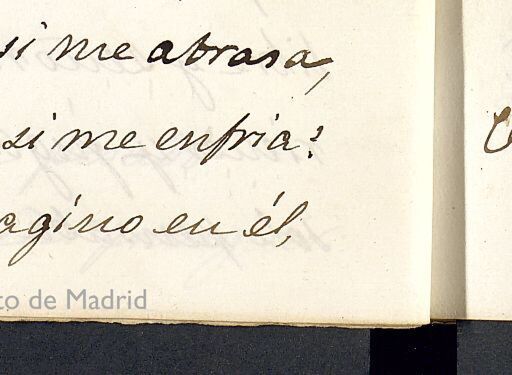 si me abrasa,
si me enfria?
agino en él,
to de Madrid